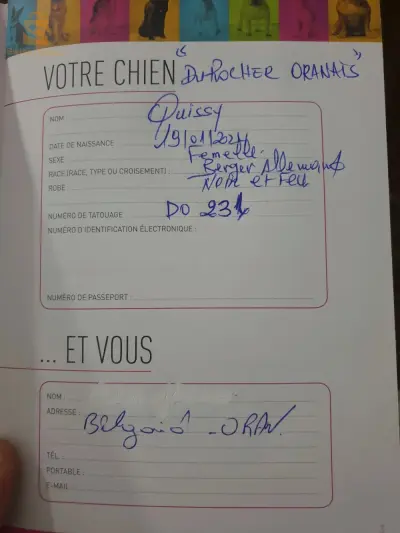 VOTRE CHIEN "Du ROCHER ORANAIS"
NOM Quissy
DATE DE NAISSANCE 19/01/2021
SEXE Femelle.
RACE (RACE, TYPE OU CROISEMENT) : Berger Allemand
ROBE : Noir et Feu
NUMÉRO DE TATOUAGE DO 231
NUMÉRO D'IDENTIFICATION ÉLECTRONIQUE :
NUMÉRO DE PASSEPORT :
... ET VOUS
NOM :
ADRESSE :
- ORAN.
TÉL. :
PORTABLE :
E-MAIL :